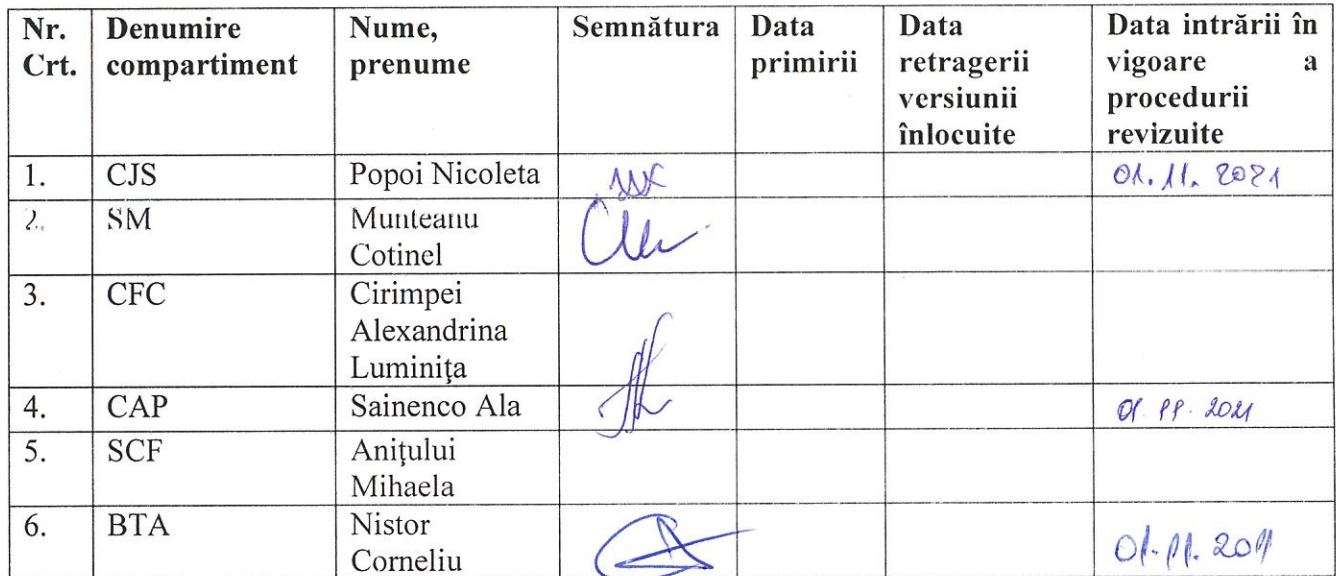 Nr. Crt. Denumire compartiment Nume, prenume Semnătura Data primirii Data retragerii versiunii înlocuite Data intrării în vigoare a procedurii revizuite
1. CJS Popoi Nicoleta 01.11.2021
2. SM Munteanu Cotinel
3. CFC Cirimpei Alexandrina Luminiţa
4. CAP Sainenco Ala 01.11.2021
5. SCF Aniţului Mihaela
6. BTA Nistor Corneliu 01.11.